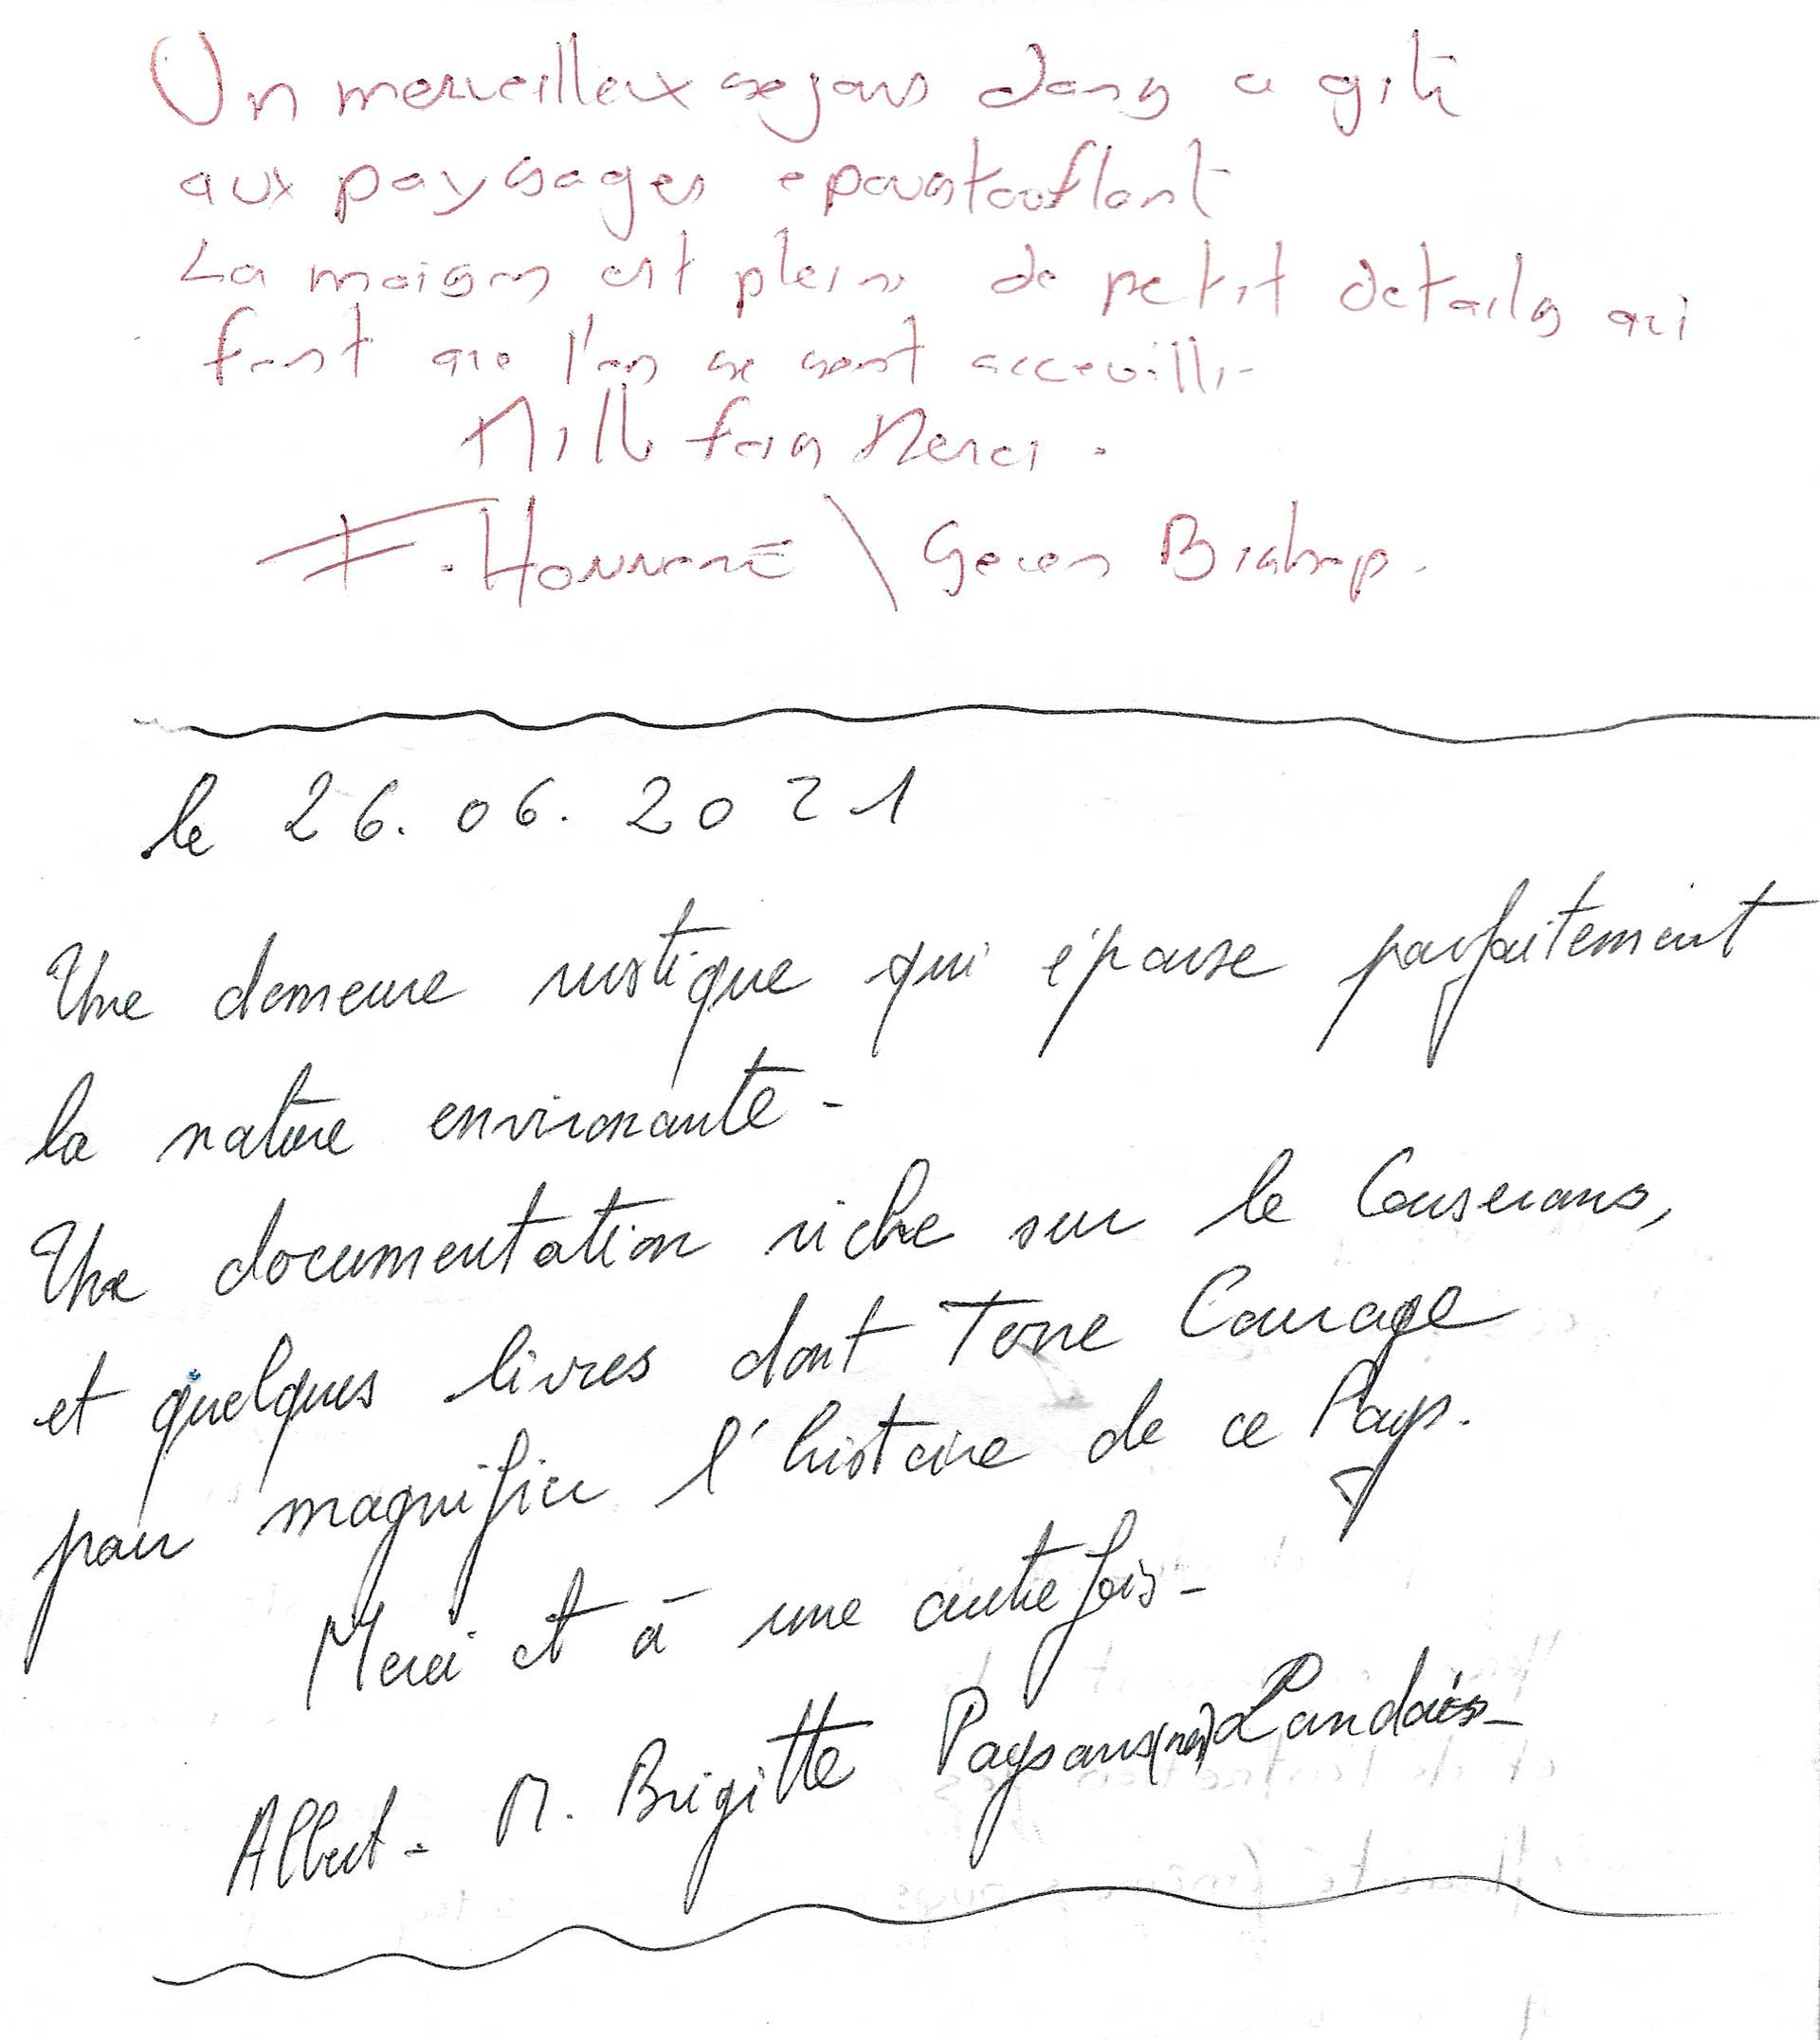 Un merveilleux sejour dans ce gite
aux paysages epoustouflant
La maison est pleine de petit details qui
font que l'on se sent acceuilli-
Mille fois Merci.
le 26.06.2021
Une demeure rustique qui épouse parfaitement
la nature environante-
Une documentation riche sur le Couserans,
et quelques livres dont Terre Courage
pour magnifier l'histoire de ce Pays.
Merci et à une autre fois-
Albert - M. Brigitte Paysans(nes) Landais-